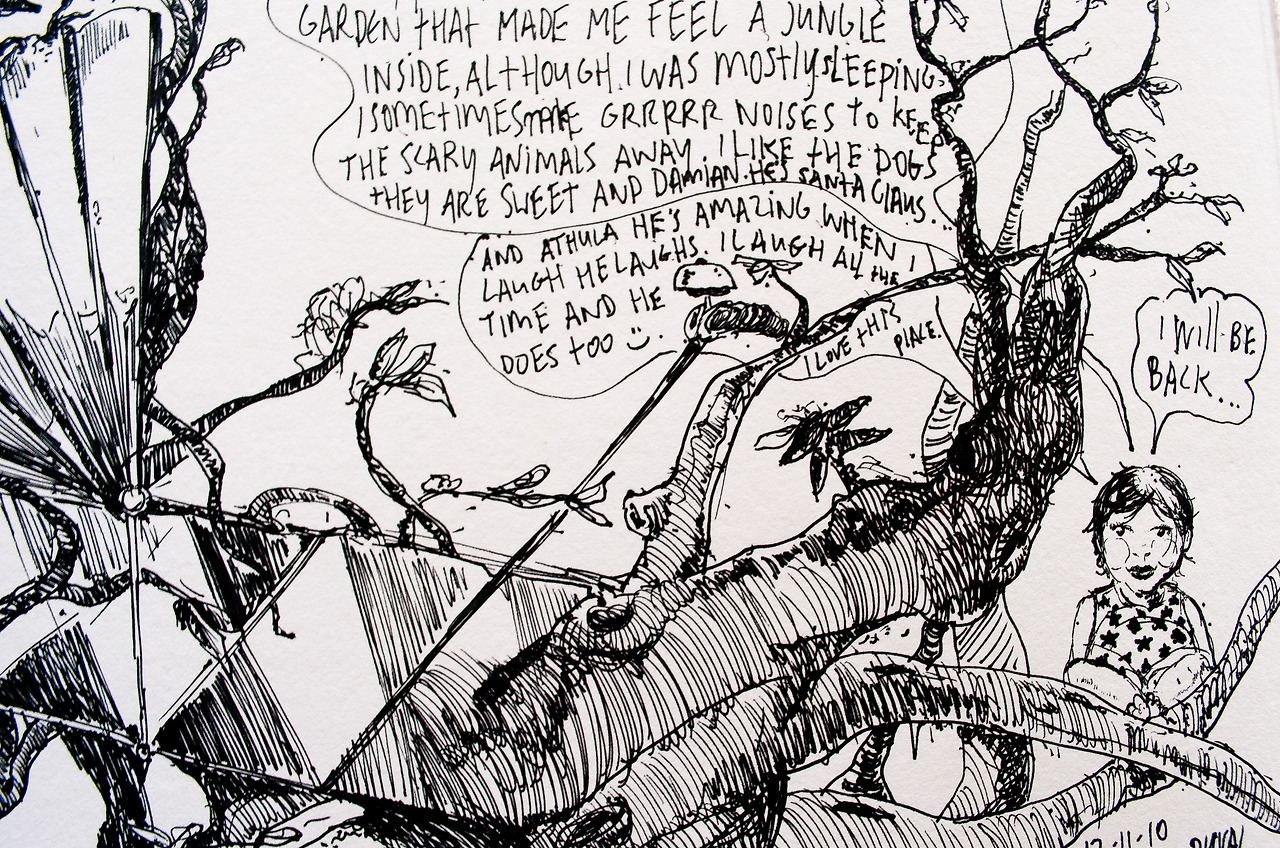 GARDEN THAT MADE ME FEEL A JUNGLE
INSIDE, ALTHOUGH. I WAS MOSTLY SLEEPING.
I SOMETIMES MAKE GRRRRR NOISES TO KEEP
THE SCARY ANIMALS AWAY. I LIKE THE DOGS
THEY ARE SWEET AND DAMIAN. HE'S SANTA CLAUS..
AND ATHULA HE'S AMAZING WHEN I
LAUGH HE LAUGHS. I LAUGH ALL THE
TIME AND HE
DOES TOO :).
I LOVE THIS
PLACE.
I WILL BE
BACK...
12-11-10